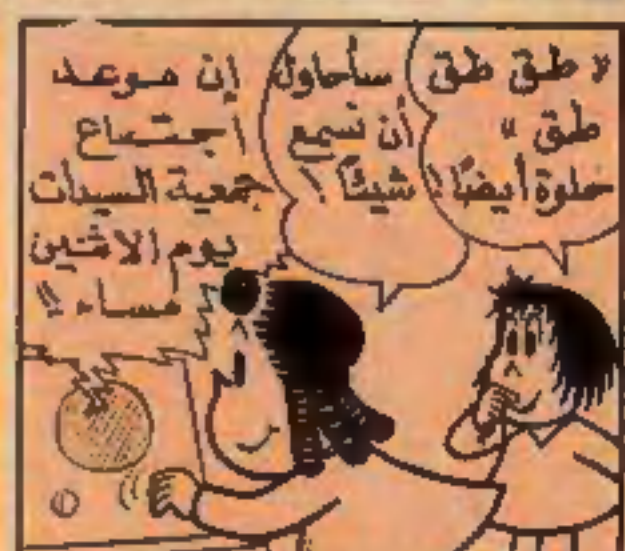 « طق طق
طق »
حلوة أيضًا !
سأحاول
أن نسمع
شيئًا !
إن موعد
اجتماع
جمعية السيدات
يوم الاثنين
مساء !!